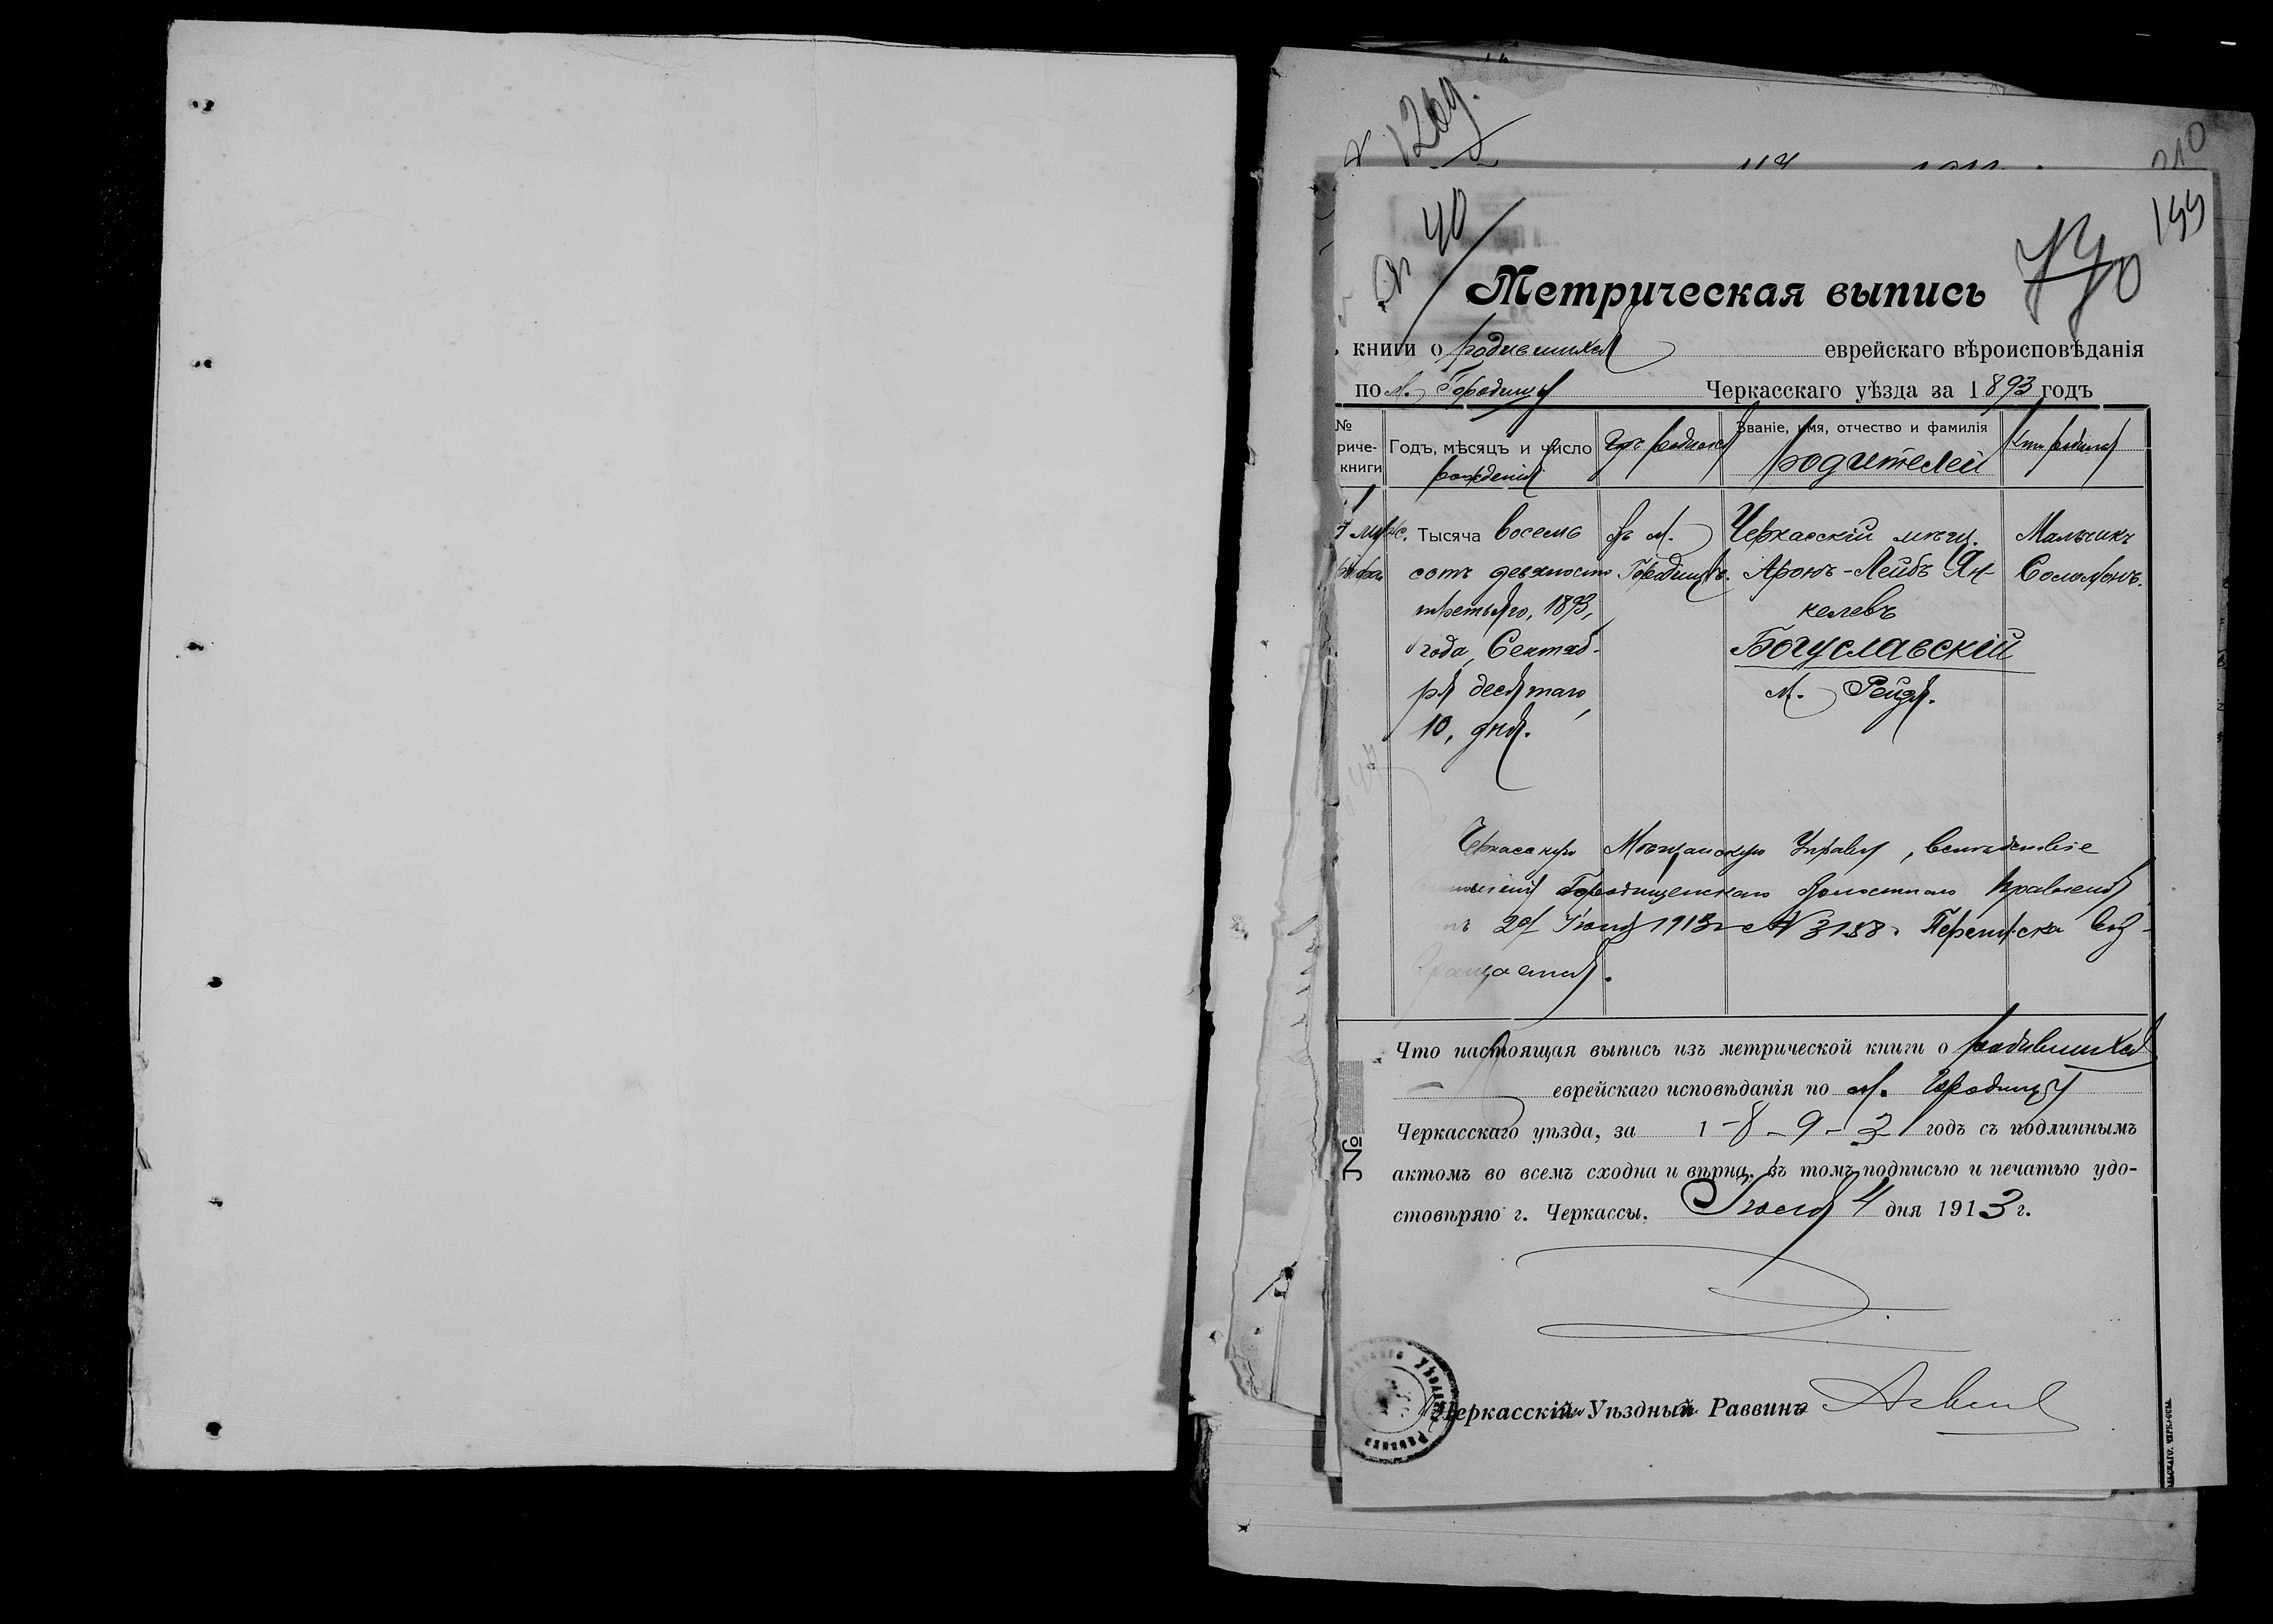 № 1269.
210
№ 40
199
Метрическая выпись
книги о родившихся еврейскаго вѣроисповѣданія
по м. Городищу Черкасскаго уѣзда за 1893 годъ
№
риче-
книги
Годъ, мѣсяцъ и число
рожденія
Гдѣ родился
Званіе, имя, отчество и фамилія
родителей
Кто родился
Тысяча восемь
сотъ девяносто
третьяго, 1893,
года, Сентяб-
ря десятаго
10, дня.
Въ м.
Городищѣ.
Черкасскій мѣщ.
Аронъ-Лейбъ Ян-
келевъ
Богуславскій
м. Рейзя.
Мальчикъ
Соломонъ.
Черкасскую Мѣщанскую Управу, вслѣдствіе
Городищенскаго Волостного Правленія
1913 г. № 3188. Переписка воз-
вращается.
Что настоящая выпись изъ метрической книги о родившихся
еврейскаго исповѣданія по м. Городищу
Черкасскаго уѣзда, за 1-8-9-3 годъ съ подлиннымъ
актомъ во всемъ сходна и вѣрна, въ томъ подписью и печатью удо-
стовѣряю г. Черкассы. Іюля 4 дня 1913 г.
№
Черкасскій Уѣздный Раввинъ